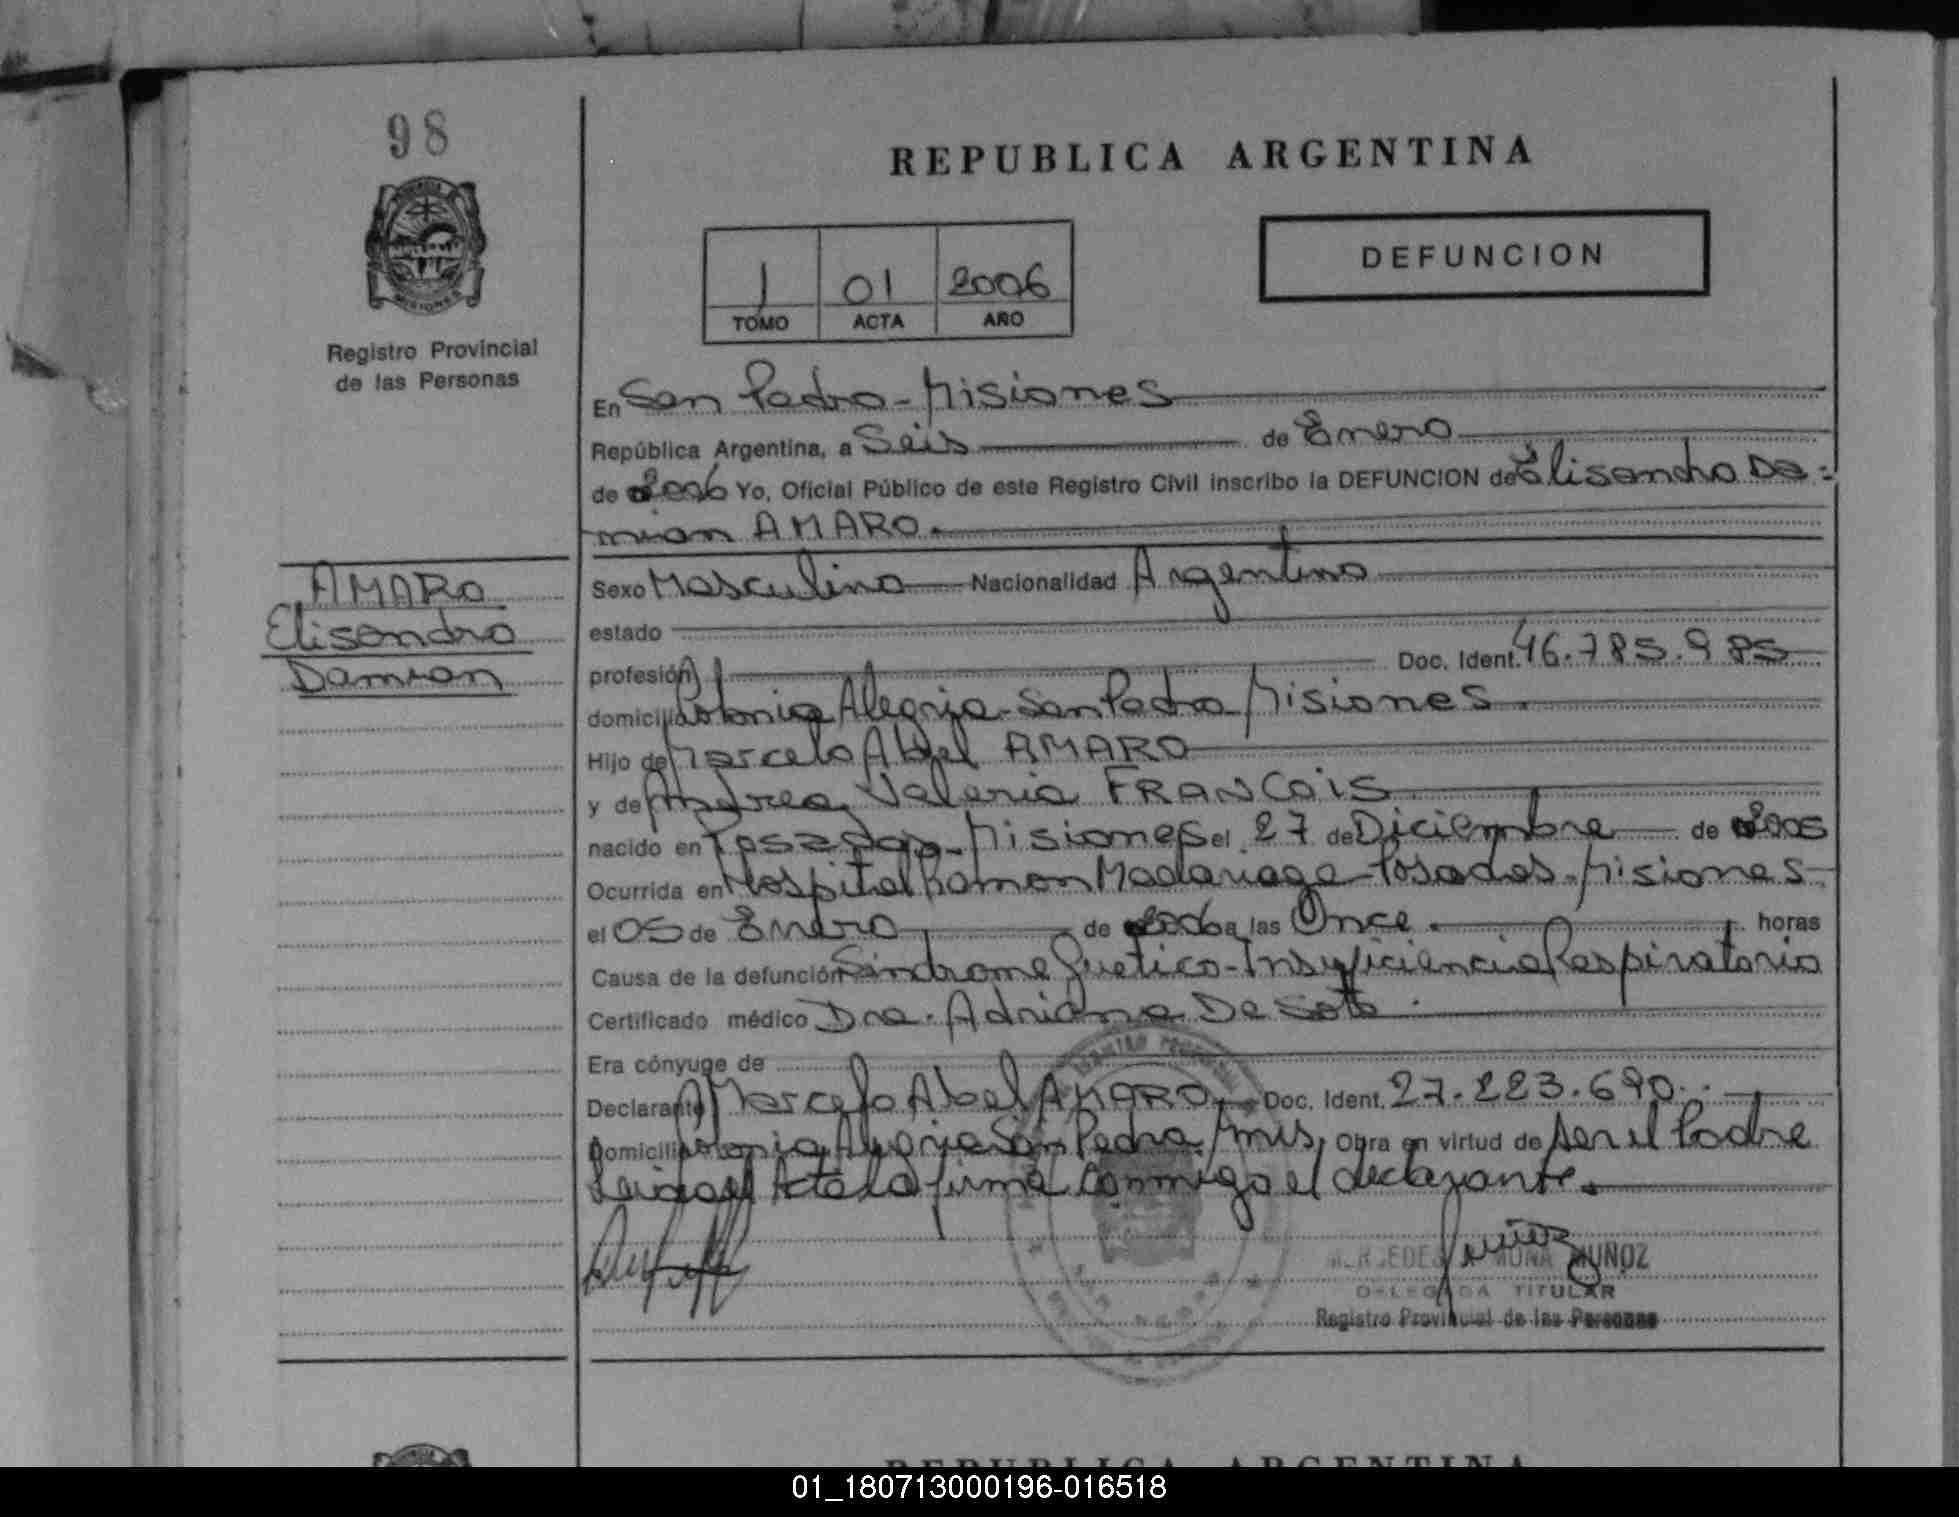 98
REPUBLICA ARGENTINA
DEFUNCION
1 01 2006
TOMO ACTA AÑO
MISIONES
Registro Provincial
de las Personas
En San Pedro - Misiones
República Argentina, a Seis de Enero
de 2006 Yo, Oficial Público de este Registro Civil inscribo la DEFUNCION de Elisandro Da-
mian AMARO.
AMARO
Elisandro
Damian
Sexo Masculino Nacionalidad Argentino
estado
profesión Doc. Ident. 46.785.985
domicilio Colonia Alegria - San Pedro Misiones.
Hijo de Marcelo Abel AMARO
y de Andrea Valeria FRANCOIS
nacido en Posadas - Misiones el 27 de Diciembre de 2005
Ocurrida en Hospital Ramon Madariaga - Posadas - Misiones
el 05 de Enero de 2006 a las Once. horas
Causa de la defunción Sindrome - Insuficiencia Respiratoria
Certificado médico Dra. Adriana De Soto.
Era cónyuge de
Declarante Marcelo Abel AMARO Doc. Ident. 27.223.690.
Domicilio Colonia Alegria San Pedro Mnes. Obra en virtud de ser el Padre
Leida el Acta la firma conmigo el declarante.
MUÑOZ
DELEGADA TITULAR
Registro Provincial de las Personas
REPUBLICA ARGENTINA
01_180713000196-016518